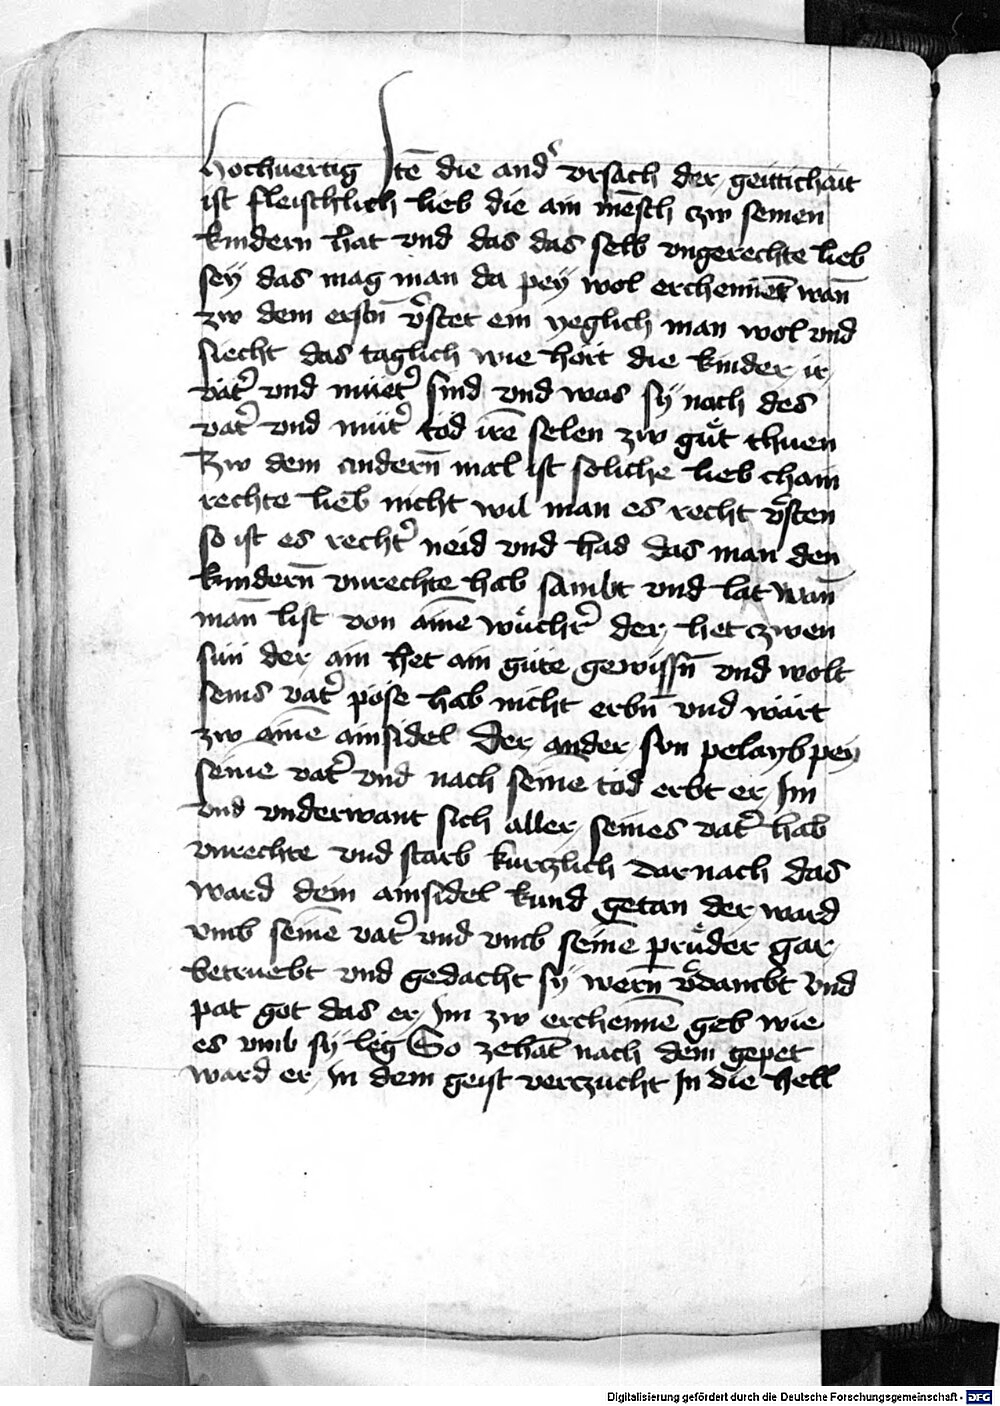 hochuertig Itē die and͛ vrsach der geittichait
ist fleischlich lieb die ain mēsch czw seinen
kindern hat vnd das das selb vngerechte lieb
sey das mag man da pey wol erchennen wañ
zw dem erstñ v͛stet ein yeglich man wol vnd
siecht das taglich wie hört die kinder ir
vät͛ vnd müet͛ sind vnd was sÿ nach des
vat͛ vnd müt͛ töd irē selen zw gůt thuen
Zw dem andern̄ mal ist soliche lieb chain
rechte lieb nicht wil man es recht v͛sten
so ist es recht͛ neid vnd has das man den
kindern̄ vnrechte hab sambt vnd lat wañ
mañ list von ainē wůchr͛ der het czwen
sün der ain het ain güte gewissñ vnd wolt
seins vat͛ pöse hab nicht erbñ vnd wart
zw ainē ainsidel Der ander sun pelayb pey
seinē vat͛ vnd nach seinē töd erbt er Im
vnd vnderwant sich aller seines vat͛ hab
vnrechte vnd starb kurtzlich dar nach das
ward dem ainsidel kund getan der ward
vmb seinē vat͛ vnd vmb seinē průder gar
betruebt vnd gedacht sÿ wern̄ v͛dambt vnd
pat got das er Im zw erchennē geb wie
es vmb sÿ leg So zehāt nach dem gepet
ward er in dem geist verczucht In die hell
Digitalisierung gefördert durch die Deutsche Forschungsgemeinschaft - DFG